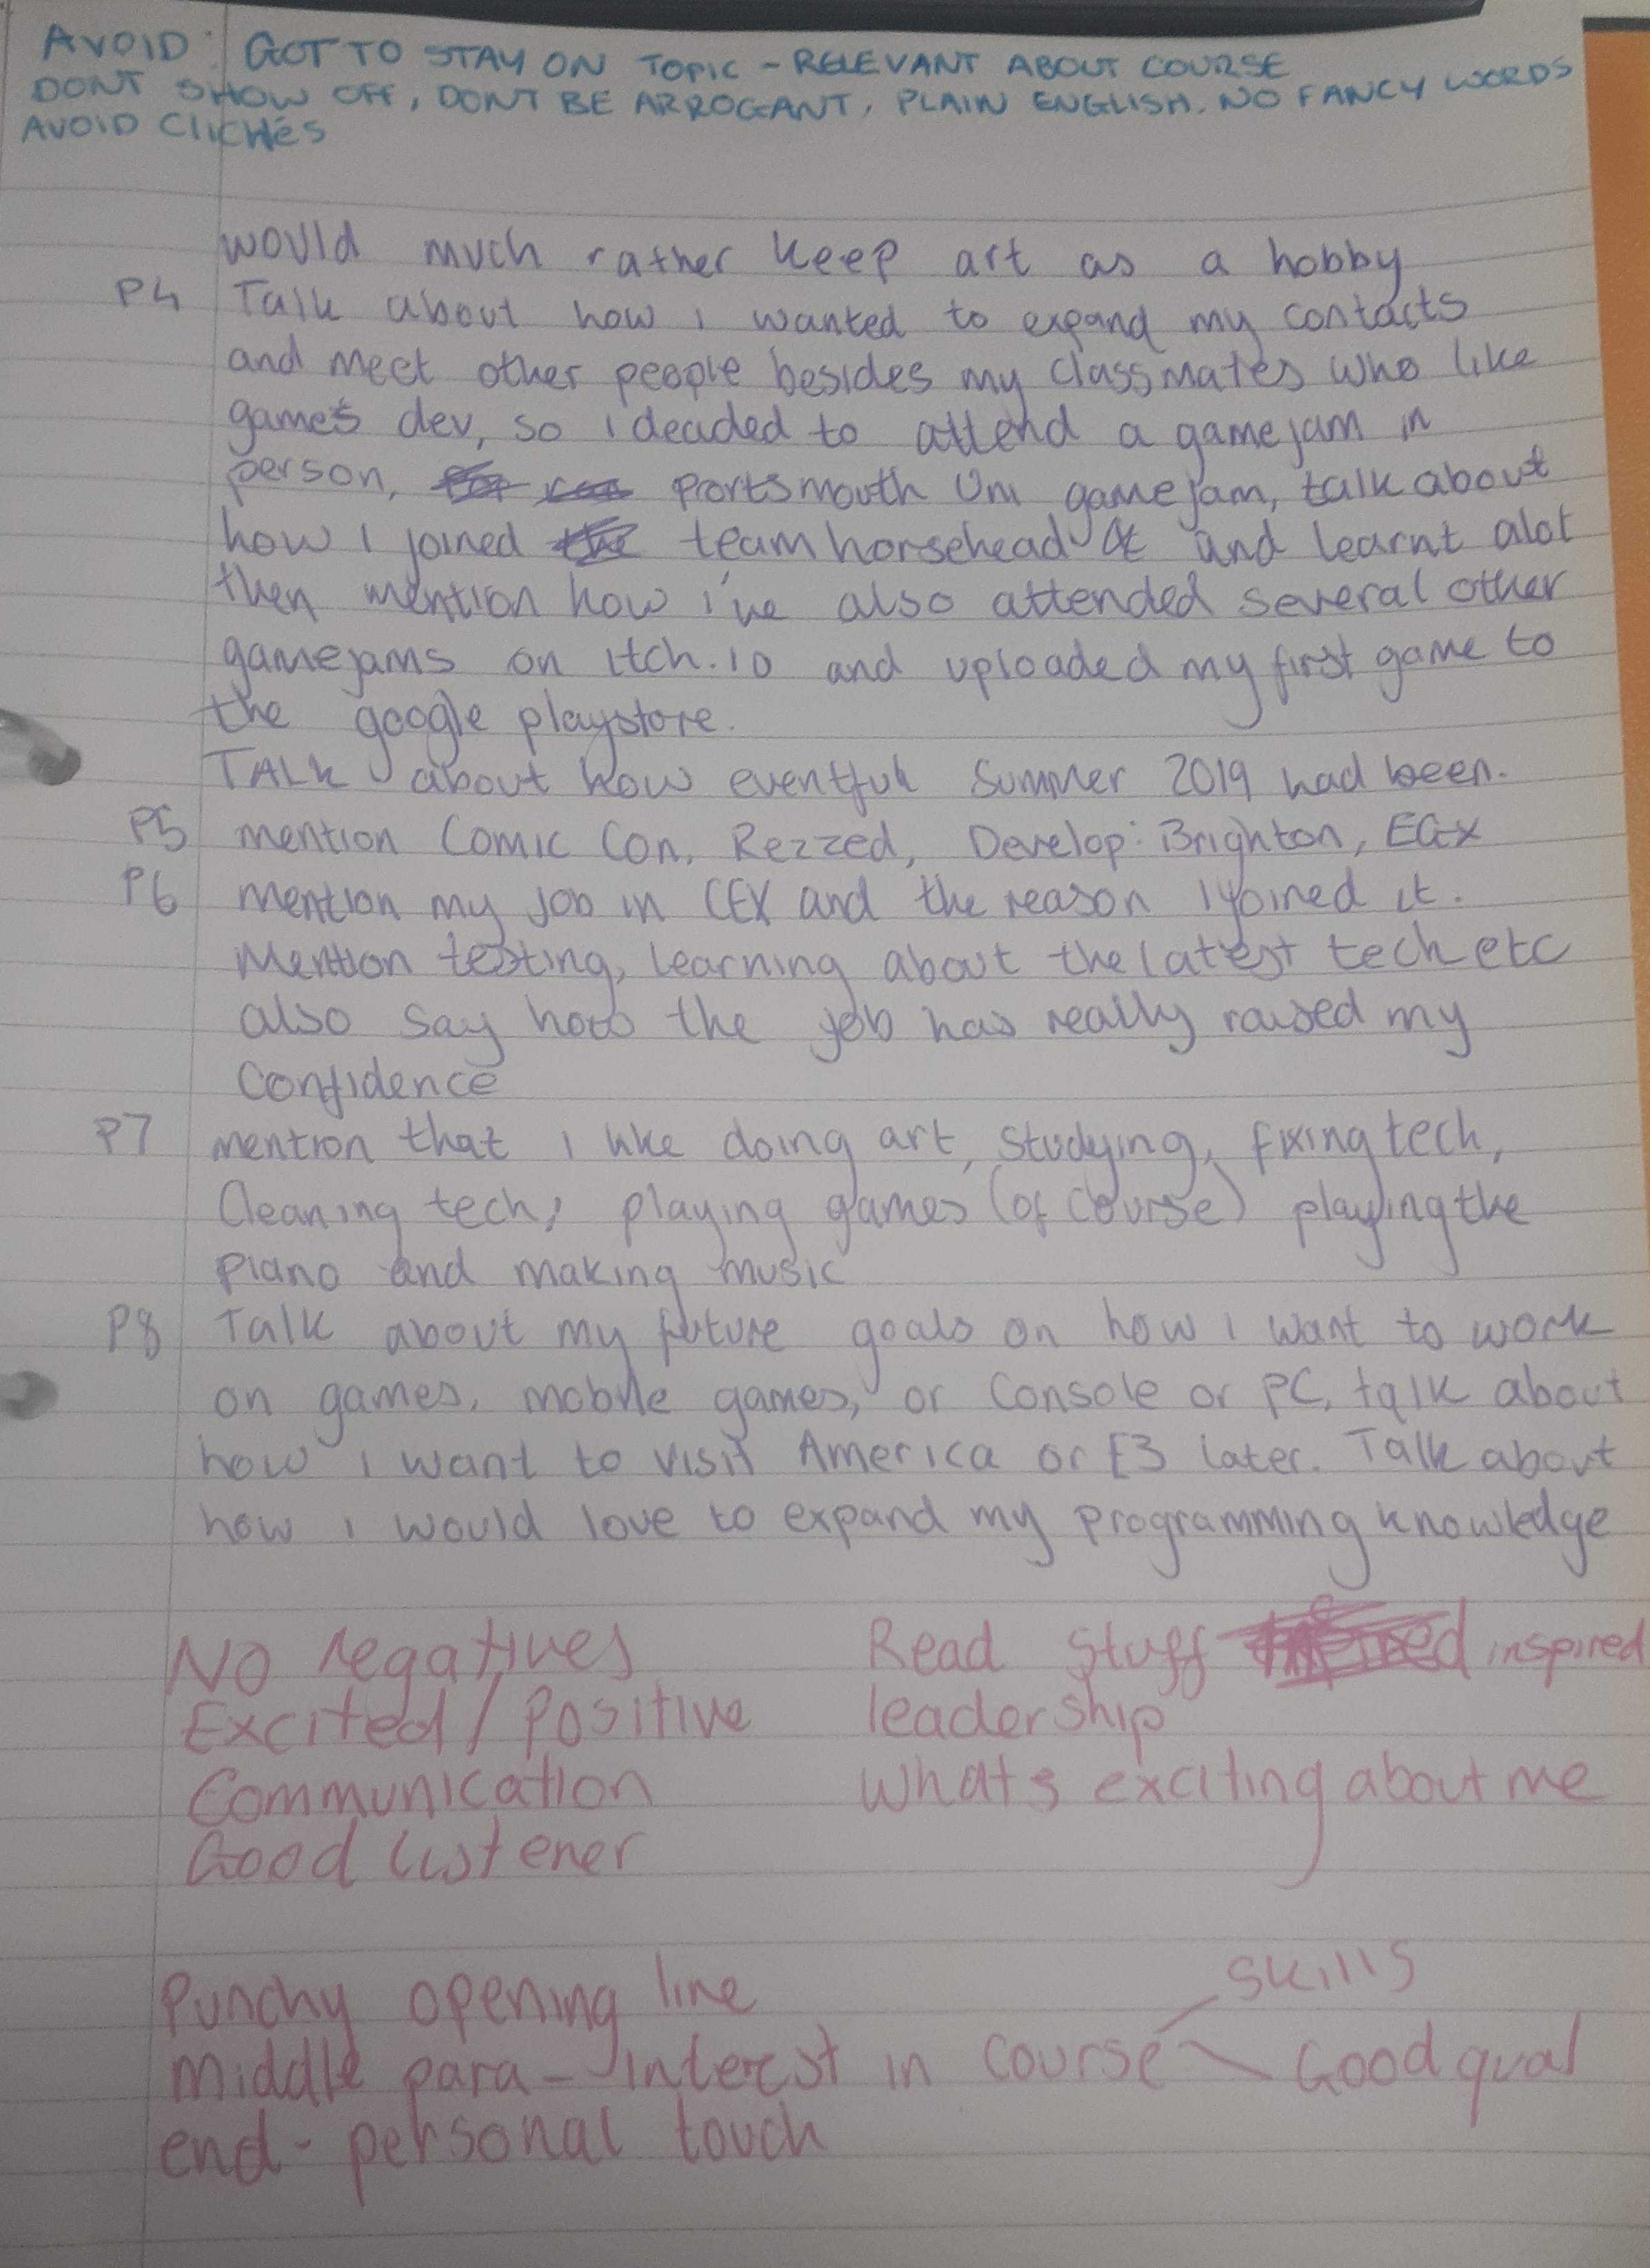 AVOID: GOT TO STAY ON TOPIC - RELEVANT ABOUT COURSE
DONT SHOW OFF, DONT BE ARROGANT, PLAIN ENGLISH. NO FANCY WORDS
AVOID Clichés
would much rather keep art as a hobby
P4 Talk about how i wanted to expand my contacts
and meet other people besides my classmates who like
games dev, so i decided to attend a gamejam in
person, Portsmouth Uni gamejam, talk about
how I joined team horsehead and learnt alot
then mention how i've also attended several other
gamejams on itch.io and uploaded my first game to
the google playstore.
TALK about how eventful Summer 2019 had been.
P5 mention Comic Con, Rezzed, Develop: Brighton, EGX
P6 mention my job in CEX and the reason I joined it.
Mention testing, learning about the latest tech etc
also say how the job has really raised my
Confidence
P7 mention that i like doing art, studying, fixing tech,
Cleaning tech, playing games (of course) playing the
piano and making music
P8 Talk about my future goals on how i want to work
on games, mobile games, or Console or PC, talk about
how i want to visit America or E3 later. Talk about
how i would love to expand my programming knowledge
No negatives
Excited / Positive
Communication
Good listener
Read stuff inspired
leadership
Whats exciting about me
Punchy opening line
Middle para - interest in course
skills
Good qual
end - personal touch